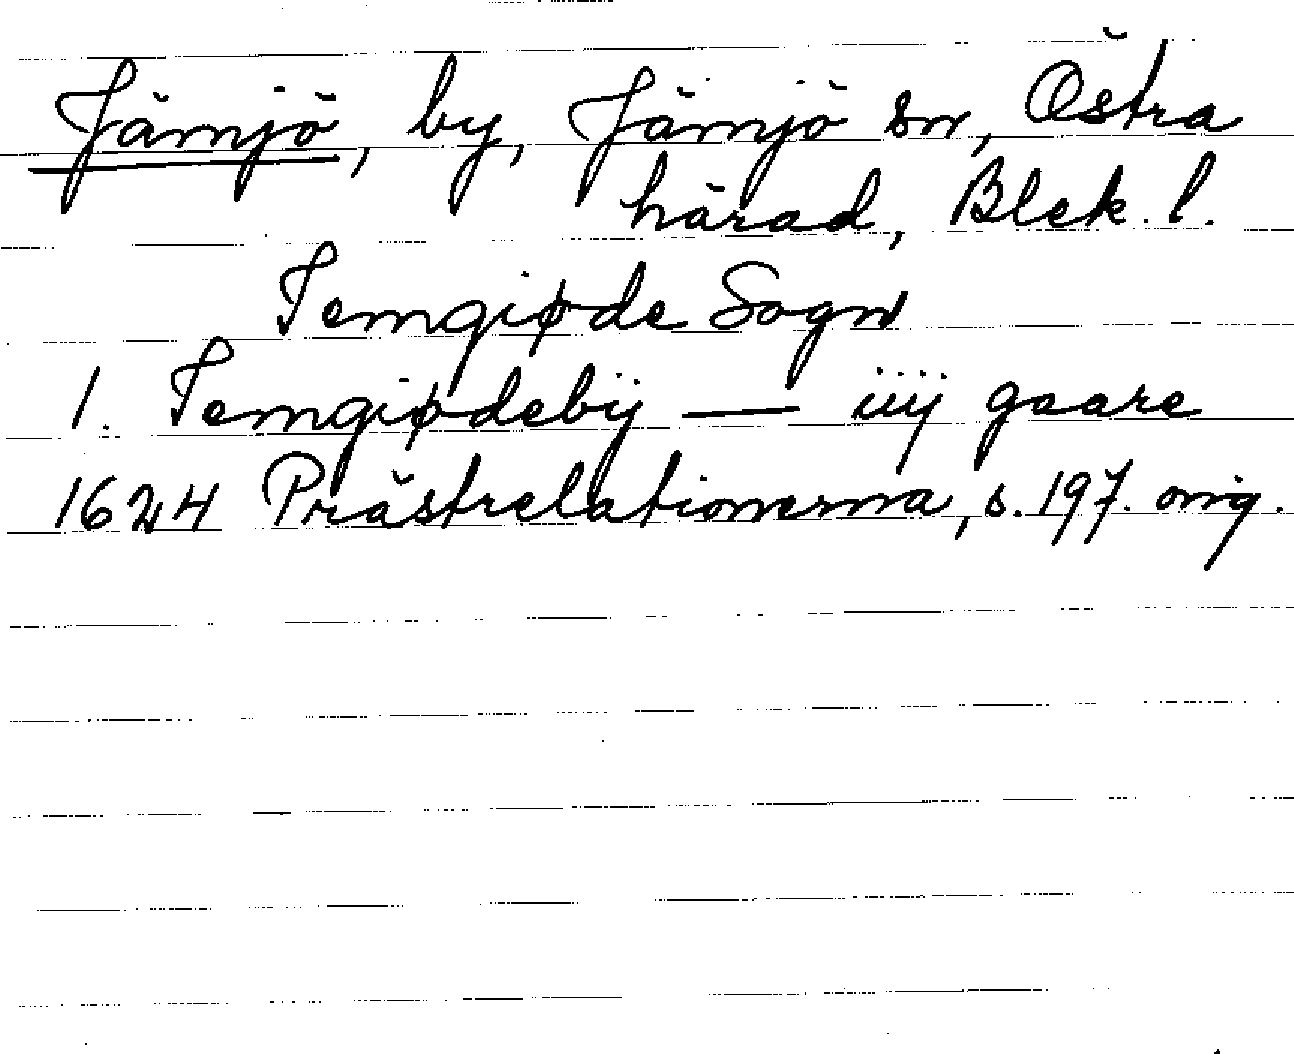 Jämjö, by, Jämjö sn, Östra
härad, Blek. l.
Jemgiøde Sogn
1. Jemgiødebÿ — iiij gaare
1624 Prästrelationerna, s. 197. orig.